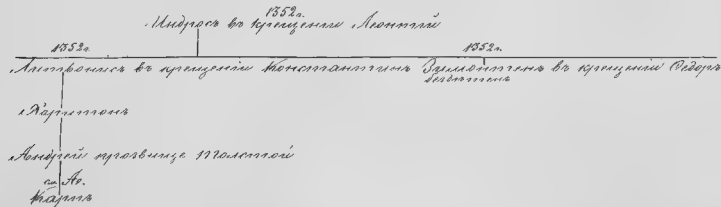 1352 г.
Индросъ въ крещеніи Леонтій
1352 г. 1352 г.
Литвонисъ въ крещеніи Константинъ Зимонтенъ въ крещеніи Ѳедоръ
бездѣтенъ
Харитонъ
Андрей прозвище Толстой
Карпъ